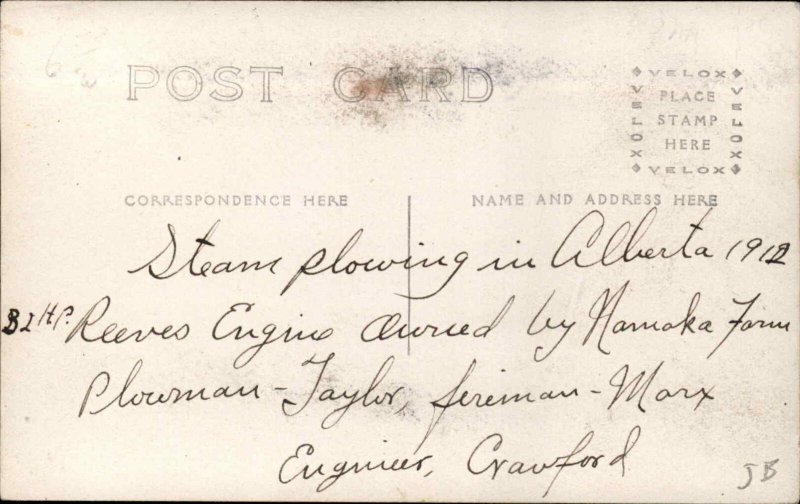 POST CARD
VELOX
VELOX
PLACE
STAMP
HERE
VELOX
VELOX
CORRESPONDENCE HERE
NAME AND ADDRESS HERE
Steam plowing in Alberta 1912
32 H.P. Reeves Engine Owned by Namaka Farm
Plowman - Taylor, fireman - Marx
Engineer, Crawford
JB